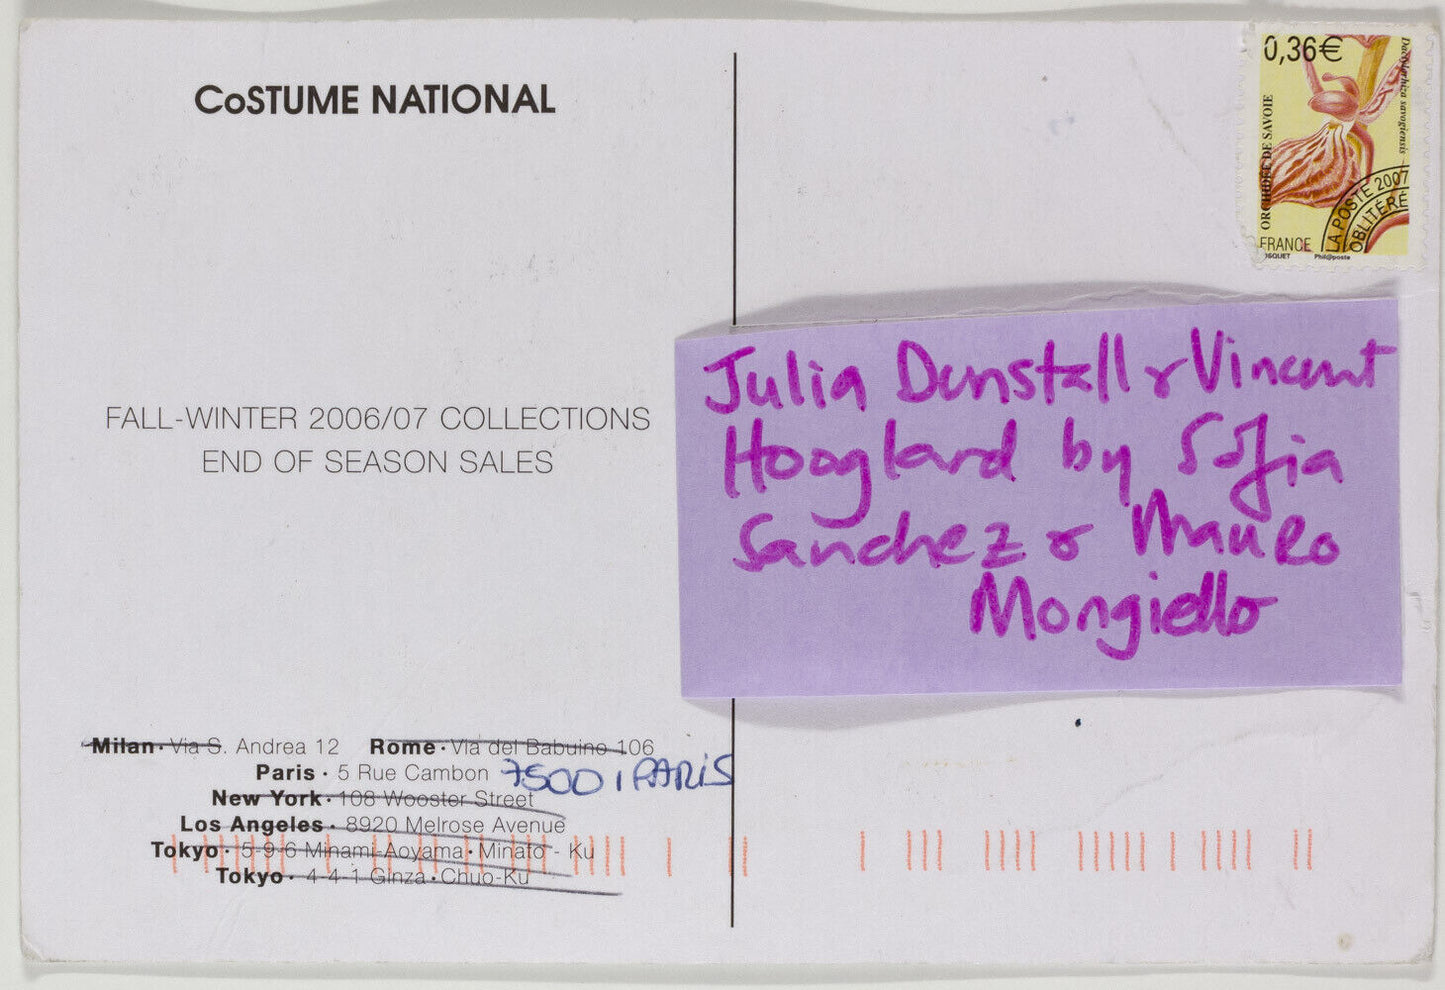 CoSTUME NATIONAL
FALL-WINTER 2006/07 COLLECTIONS
END OF SEASON SALES
Milan · Via S. Andrea 12 Rome · Via del Babuino 106
Paris · 5 Rue Cambon 75001 PARIS
New York · 108 Wooster Street
Los Angeles · 8920 Melrose Avenue
Tokyo · 5-9-6 Minami-Aoyama · Minato - Ku
Tokyo · 4-4-1 Ginza · Chuo-Ku
0,36€
ORCHIDÉE DE SAVOIE
Dactylorhiza savogiensis
LA POSTE 2007
OBLITÉRÉ
FRANCE
Phil@poste
Julia Dunstall & Vincent
Hoogland by Sofia
Sanchez & Mauro
Mongiello